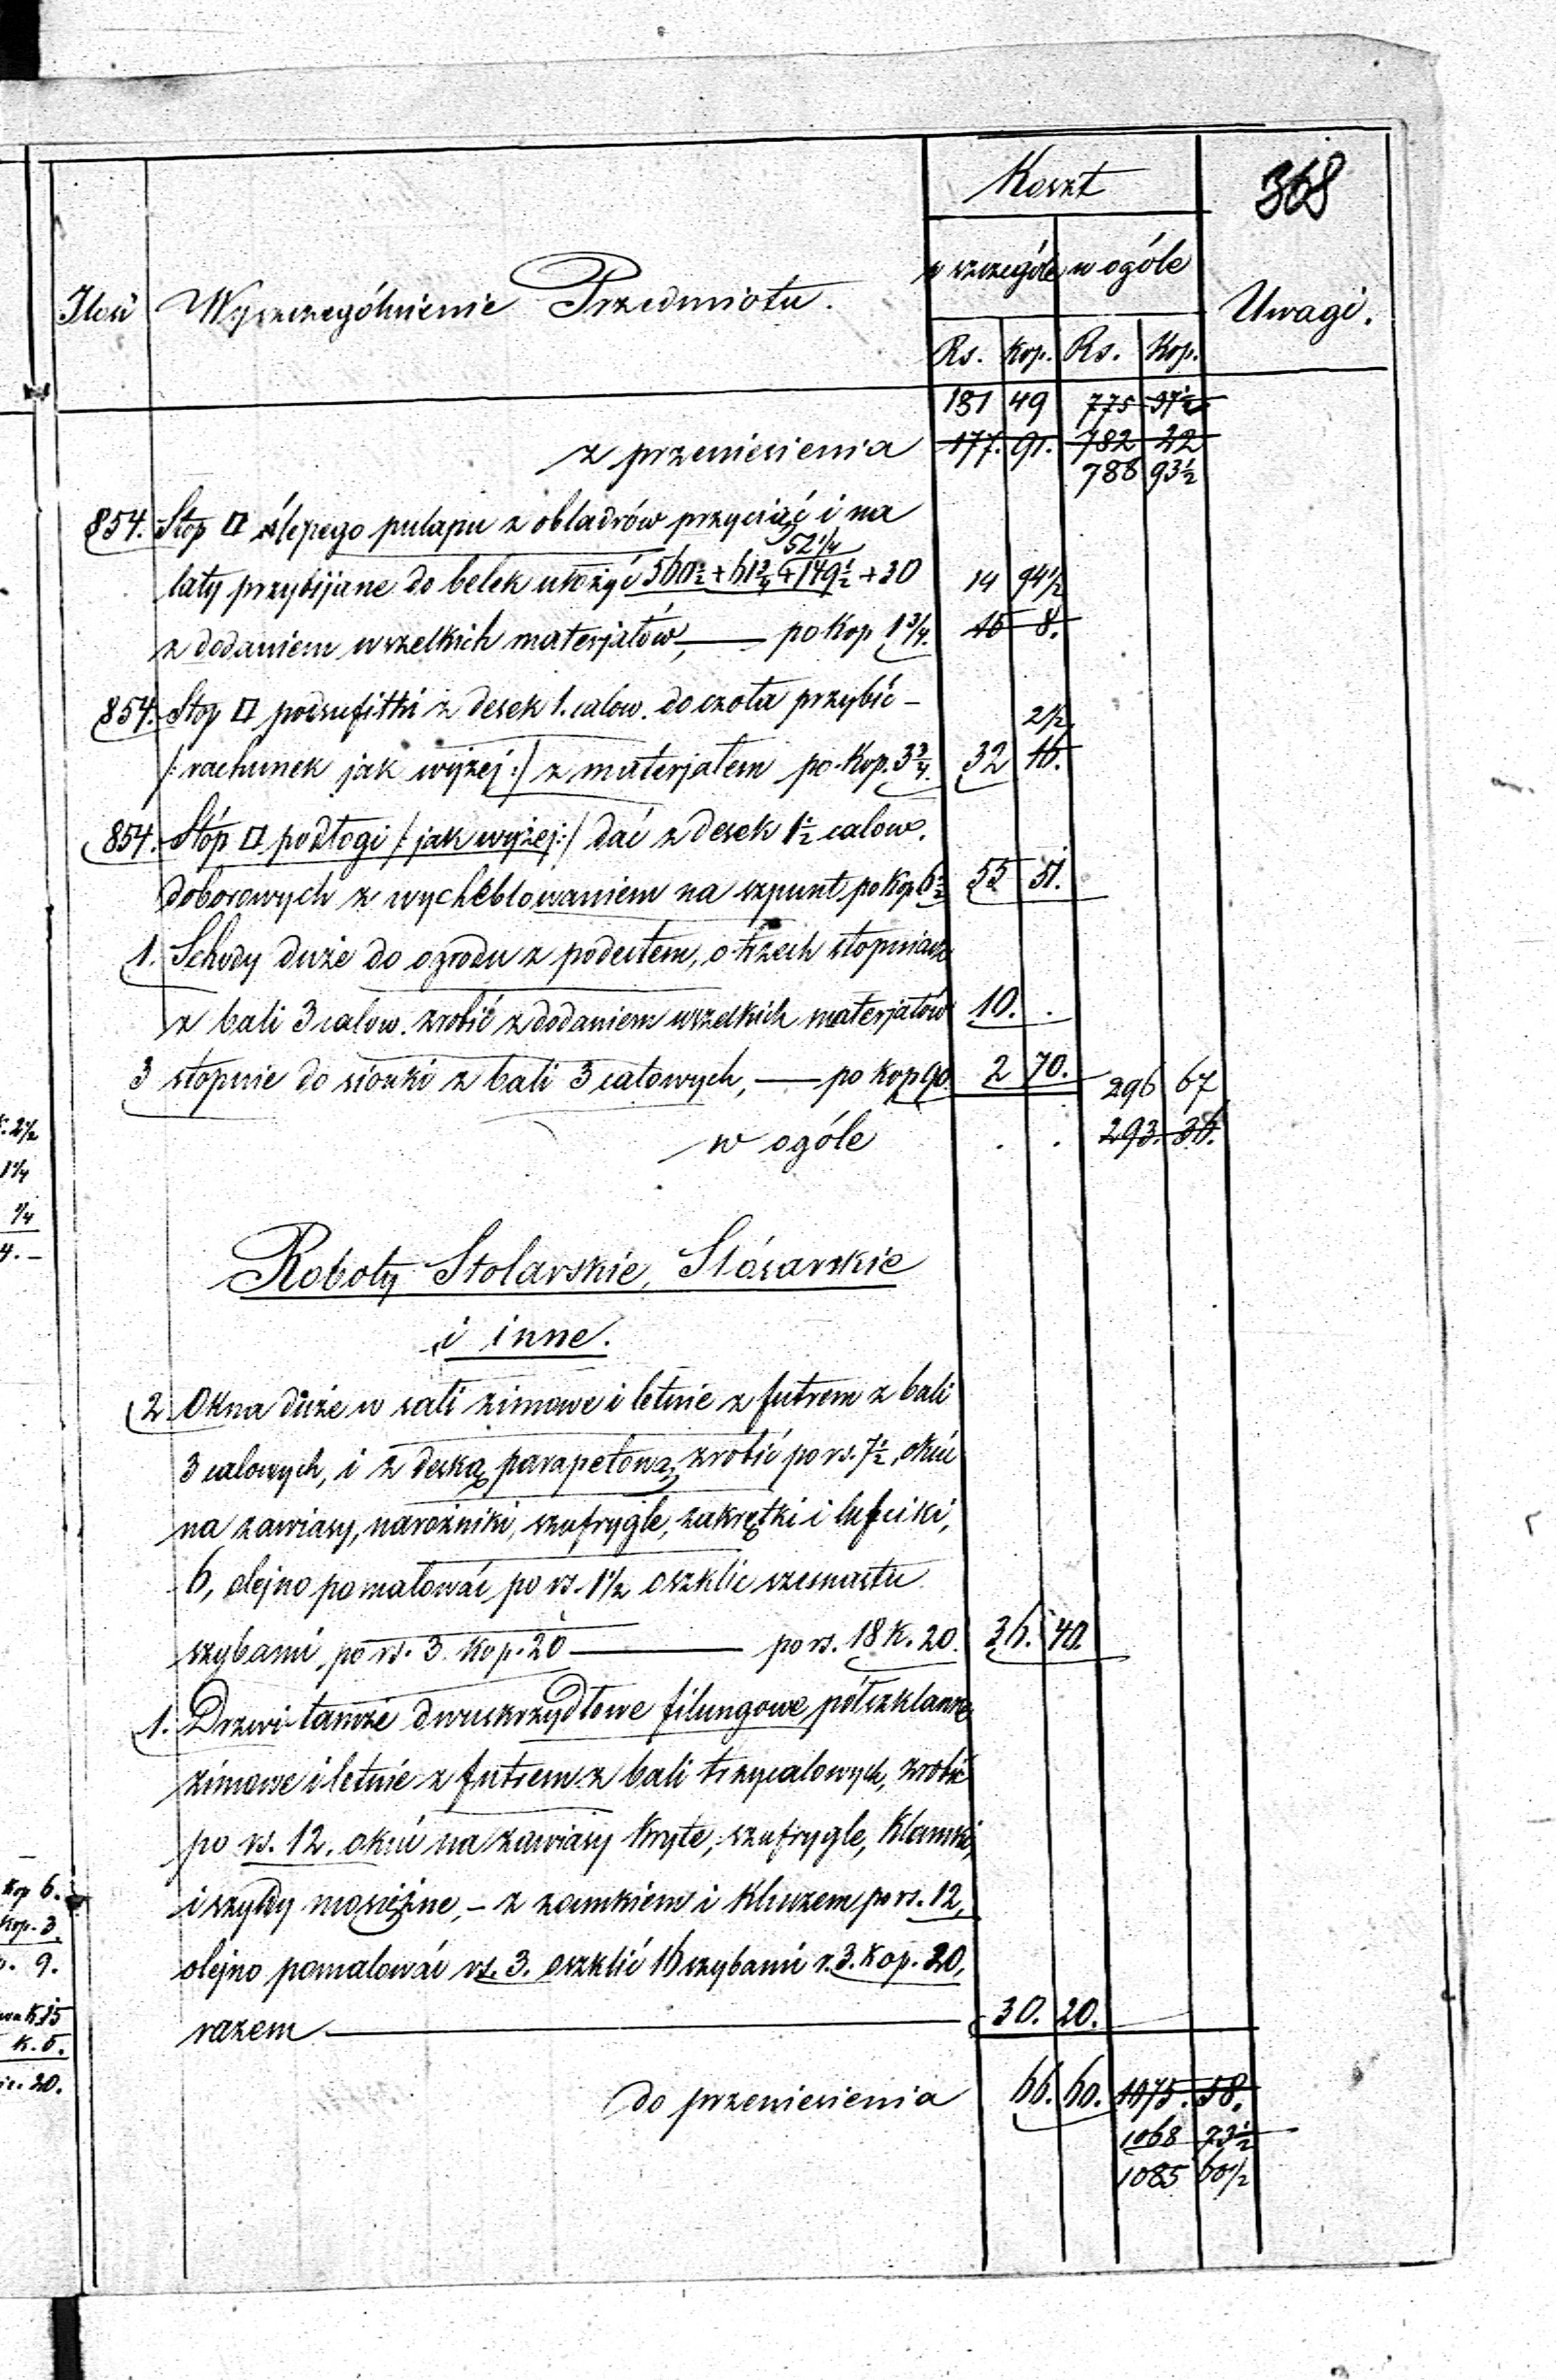 368
Koszt
w szczególe w ogóle
Ilość Wyszczególnienie Przedmiotu. Uwagi.
Rs. Kop. Rs. Kop.
181 49 775 37½
z przeniesienia 177. 91. 782 22
788 93½
854. Stop □ ślepego pułapu z obladrów przyciąć i na
52¼
łaty przybijane do belek ułożyć 560½ + 61¾ + 149½ + 30 14 94½
z dodaniem wszelkich materjałów, — po Kop 1¾. 15 8.
854. Stop □ podsufitki z desek 1. calow. do czoła przybić – 2½
/: rachunek jak wyżej :/ z materjałem po Kop. 3¾. 32 16.
854. Stóp □ podłogi /: jak wyżej :/ dać z desek 1½ calow.
doborowych z wycheblowaniem na szpunt po Kop 6½ 55 51.
1. Schody duże do ogrodu z podestem, o trzech stopniach
z bali 3 calow. zrobić z dodaniem wszelkich materjałów 10. .
3 stopnie do sionki z bali 3 calowych, — po Kop 90. 2 70. 296 67
w ogóle . . 293. 36.
Roboty Stolarskie, Ślósarskie
i inne.
2. Okna duże w sali zimowe i letnie z futrem z bali
3 calowych, i z deską parapetową, zrobić po rs. 7½, okuć
na zawiasy, narożniki, szufrygle, zakrętki i lufciki,
6, olejno pomalować po rs. 1½ oszklić szesnastu
szybami po rs. 3. Kop. 20 — po rs. 18 K. 20. 36. 40.
1. Drzwi tamże dwuskrzydłowe filungowe, półszklanne
zimowe i letnie z futrem z bali trzycalowych, zrobić
po rs. 12. okuć na zawiasy kryte, szufrygle, klamki,
i szyldy mosiężne, – z zamkiem i kluczem po rs. 12,
olejno pomalować rs. 3. oszklić 16 szybami r. 3. Kop. 20,
razem — 30. 20.
do przeniesienia 66. 60. 1075. 58.
1068 73½
1085 60½